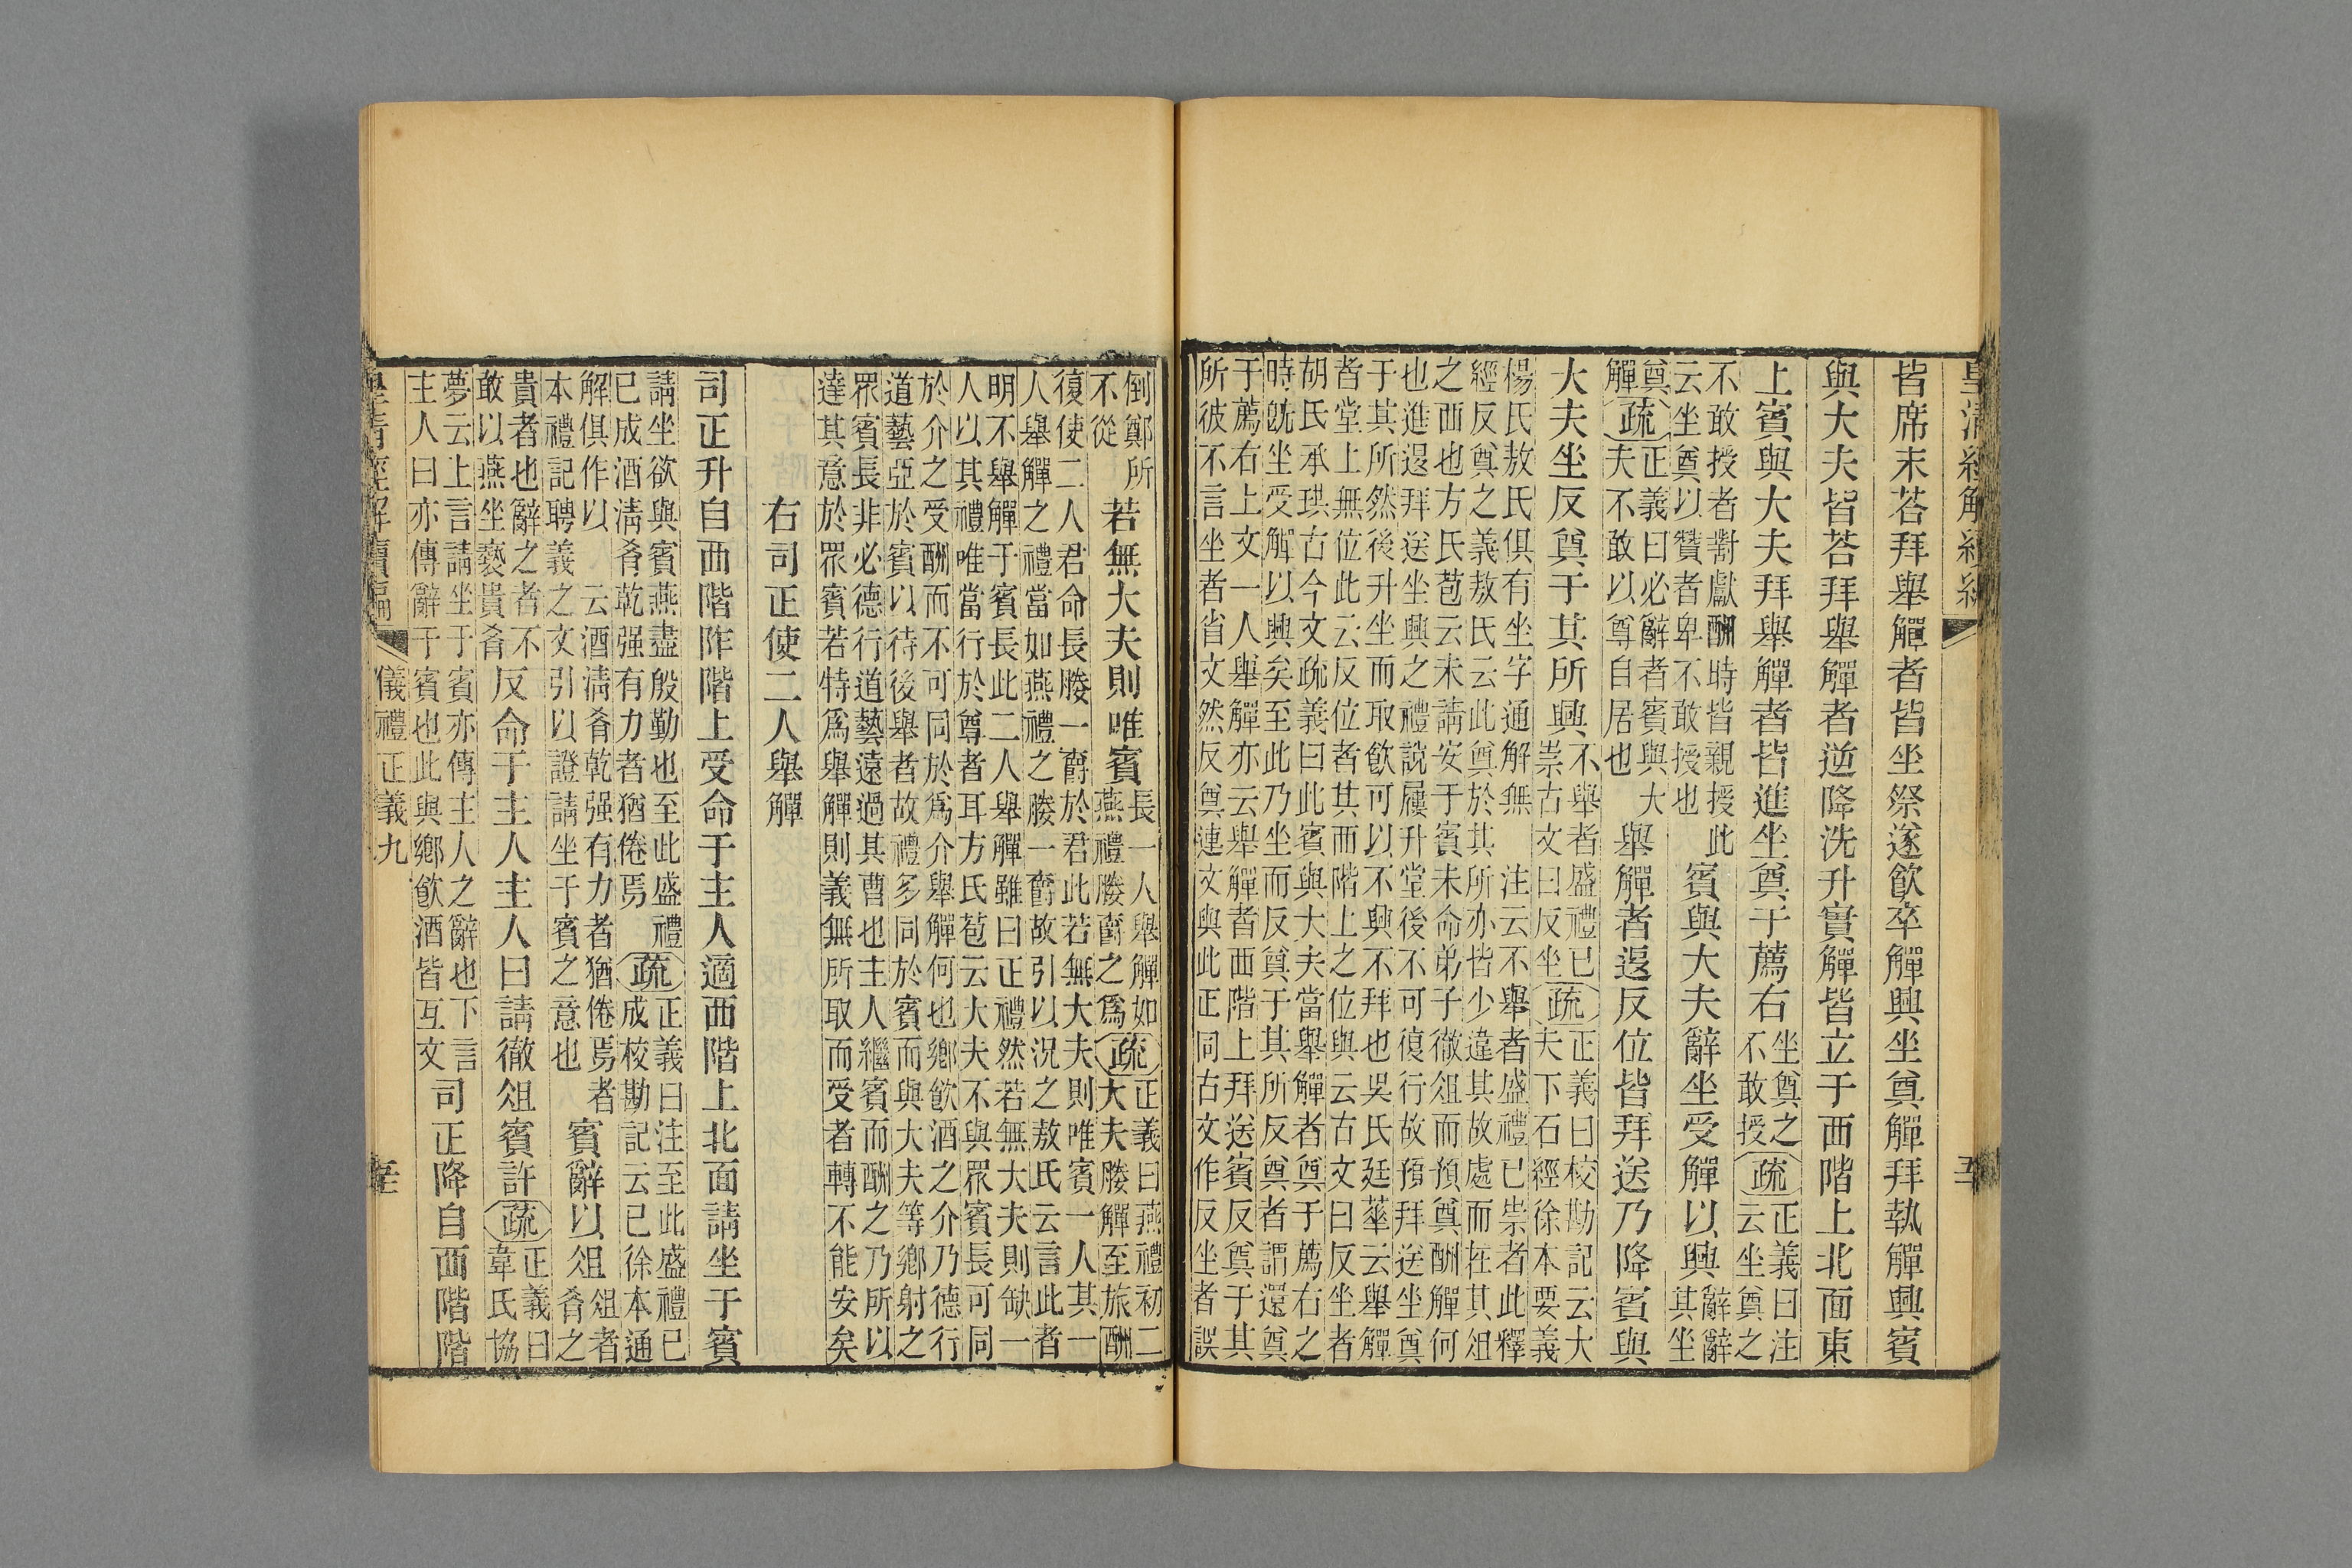 皇清經解續編
皆席末荅拜舉觶者皆坐祭遂飲卒觶興坐奠觶拜執觶興賓
與大夫皆荅拜舉觶者逆降洗升實觶皆立于西階上北面東
上賓與大夫拜舉觶者皆進坐奠于薦右
坐奠之
不敢授
疏
正義曰注
云坐奠之
不敢授者對獻酬時皆親授此
云坐奠以贊者卑不敢授也
賓與大夫辭坐受觶以興
辭辭
其坐
奠
觶
疏
正義曰必辭者賓與大
夫不敢以尊自居也
舉觶者退反位皆拜送乃降賓與
大夫坐反奠于其所興
不舉者盛禮已
崇古文曰反坐
疏
正義曰校勘記云大
夫下石經徐本要義
楊氏敖氏俱有坐字通解無
注云不舉者盛禮已崇者此釋
經反奠之義敖氏云此奠於其所亦皆少違其故處而在其俎
之西也方氏苞云未請安于賓未命弟子徹俎而預奠酬觶何
也進退拜送坐興之禮說屨升堂後不可復行故預拜送坐奠
于其所然後升坐而取飲可以不興不拜也吳氏廷華云舉觶
者堂上無位此云反位者其西階上之位與云古文曰反坐者
胡氏承珙古今文疏義曰此賓與大夫當舉觶者奠于薦右之
時旣坐受觶以興矣至此乃坐而反奠于其所反奠者謂還奠
于薦右上文一人舉觶亦云舉觶者西階上拜送賓反奠于其
所彼不言坐者省文然反奠連文與此正同古文作反坐者誤
倒鄭所
不從
若無大夫則唯賓
長一人舉觶如
燕禮媵爵之爲
疏
正義曰燕禮初二
大夫媵觶至旅酬
復使二人君命長媵一爵於君此若無大夫則唯賓一人其一
人舉觶之禮當如燕禮之媵一爵故引以況之敖氏云言此者
明不舉觶于賓長此二人舉觶雖曰正禮然若無大夫則缺一
人以其禮唯當行於尊者耳方氏苞云大夫不與眾賓長可同
於介之受酬而不可同於爲介舉觶何也鄉飲酒之介乃德行
道藝亞於賓以待後舉者故禮多同於賓而與大夫等鄉射之
眾賓長非必德行道藝遠過其曹也主人繼賓而酬之乃所以
達其意於眾賓若特爲舉觶則義無所取而受者轉不能安矣
右司正使二人舉觶
司正升自西階阼階上受命于主人適西階上北面請坐于賓
請坐欲與賓燕盡殷勤也至此盛禮
已成酒清肴乾强有力者猶倦焉
疏
正義曰注至此盛禮已
成校勘記云已徐本通
解俱作以　云酒清肴乾强有力者猶倦焉者
本禮記聘義之文引以證請坐于賓之意也
賓辭以俎
俎者
肴之
貴者也辭之者不
敢以燕坐褻貴肴
反命于主人主人曰請徹俎賓許
疏
正義曰
韋氏協
夢云上言請坐于賓亦傳主人之辭也下言
主人曰亦傳辭于賓也此與鄉飲酒皆互文
司正降自西階階
皇清經解續編
儀禮正義九